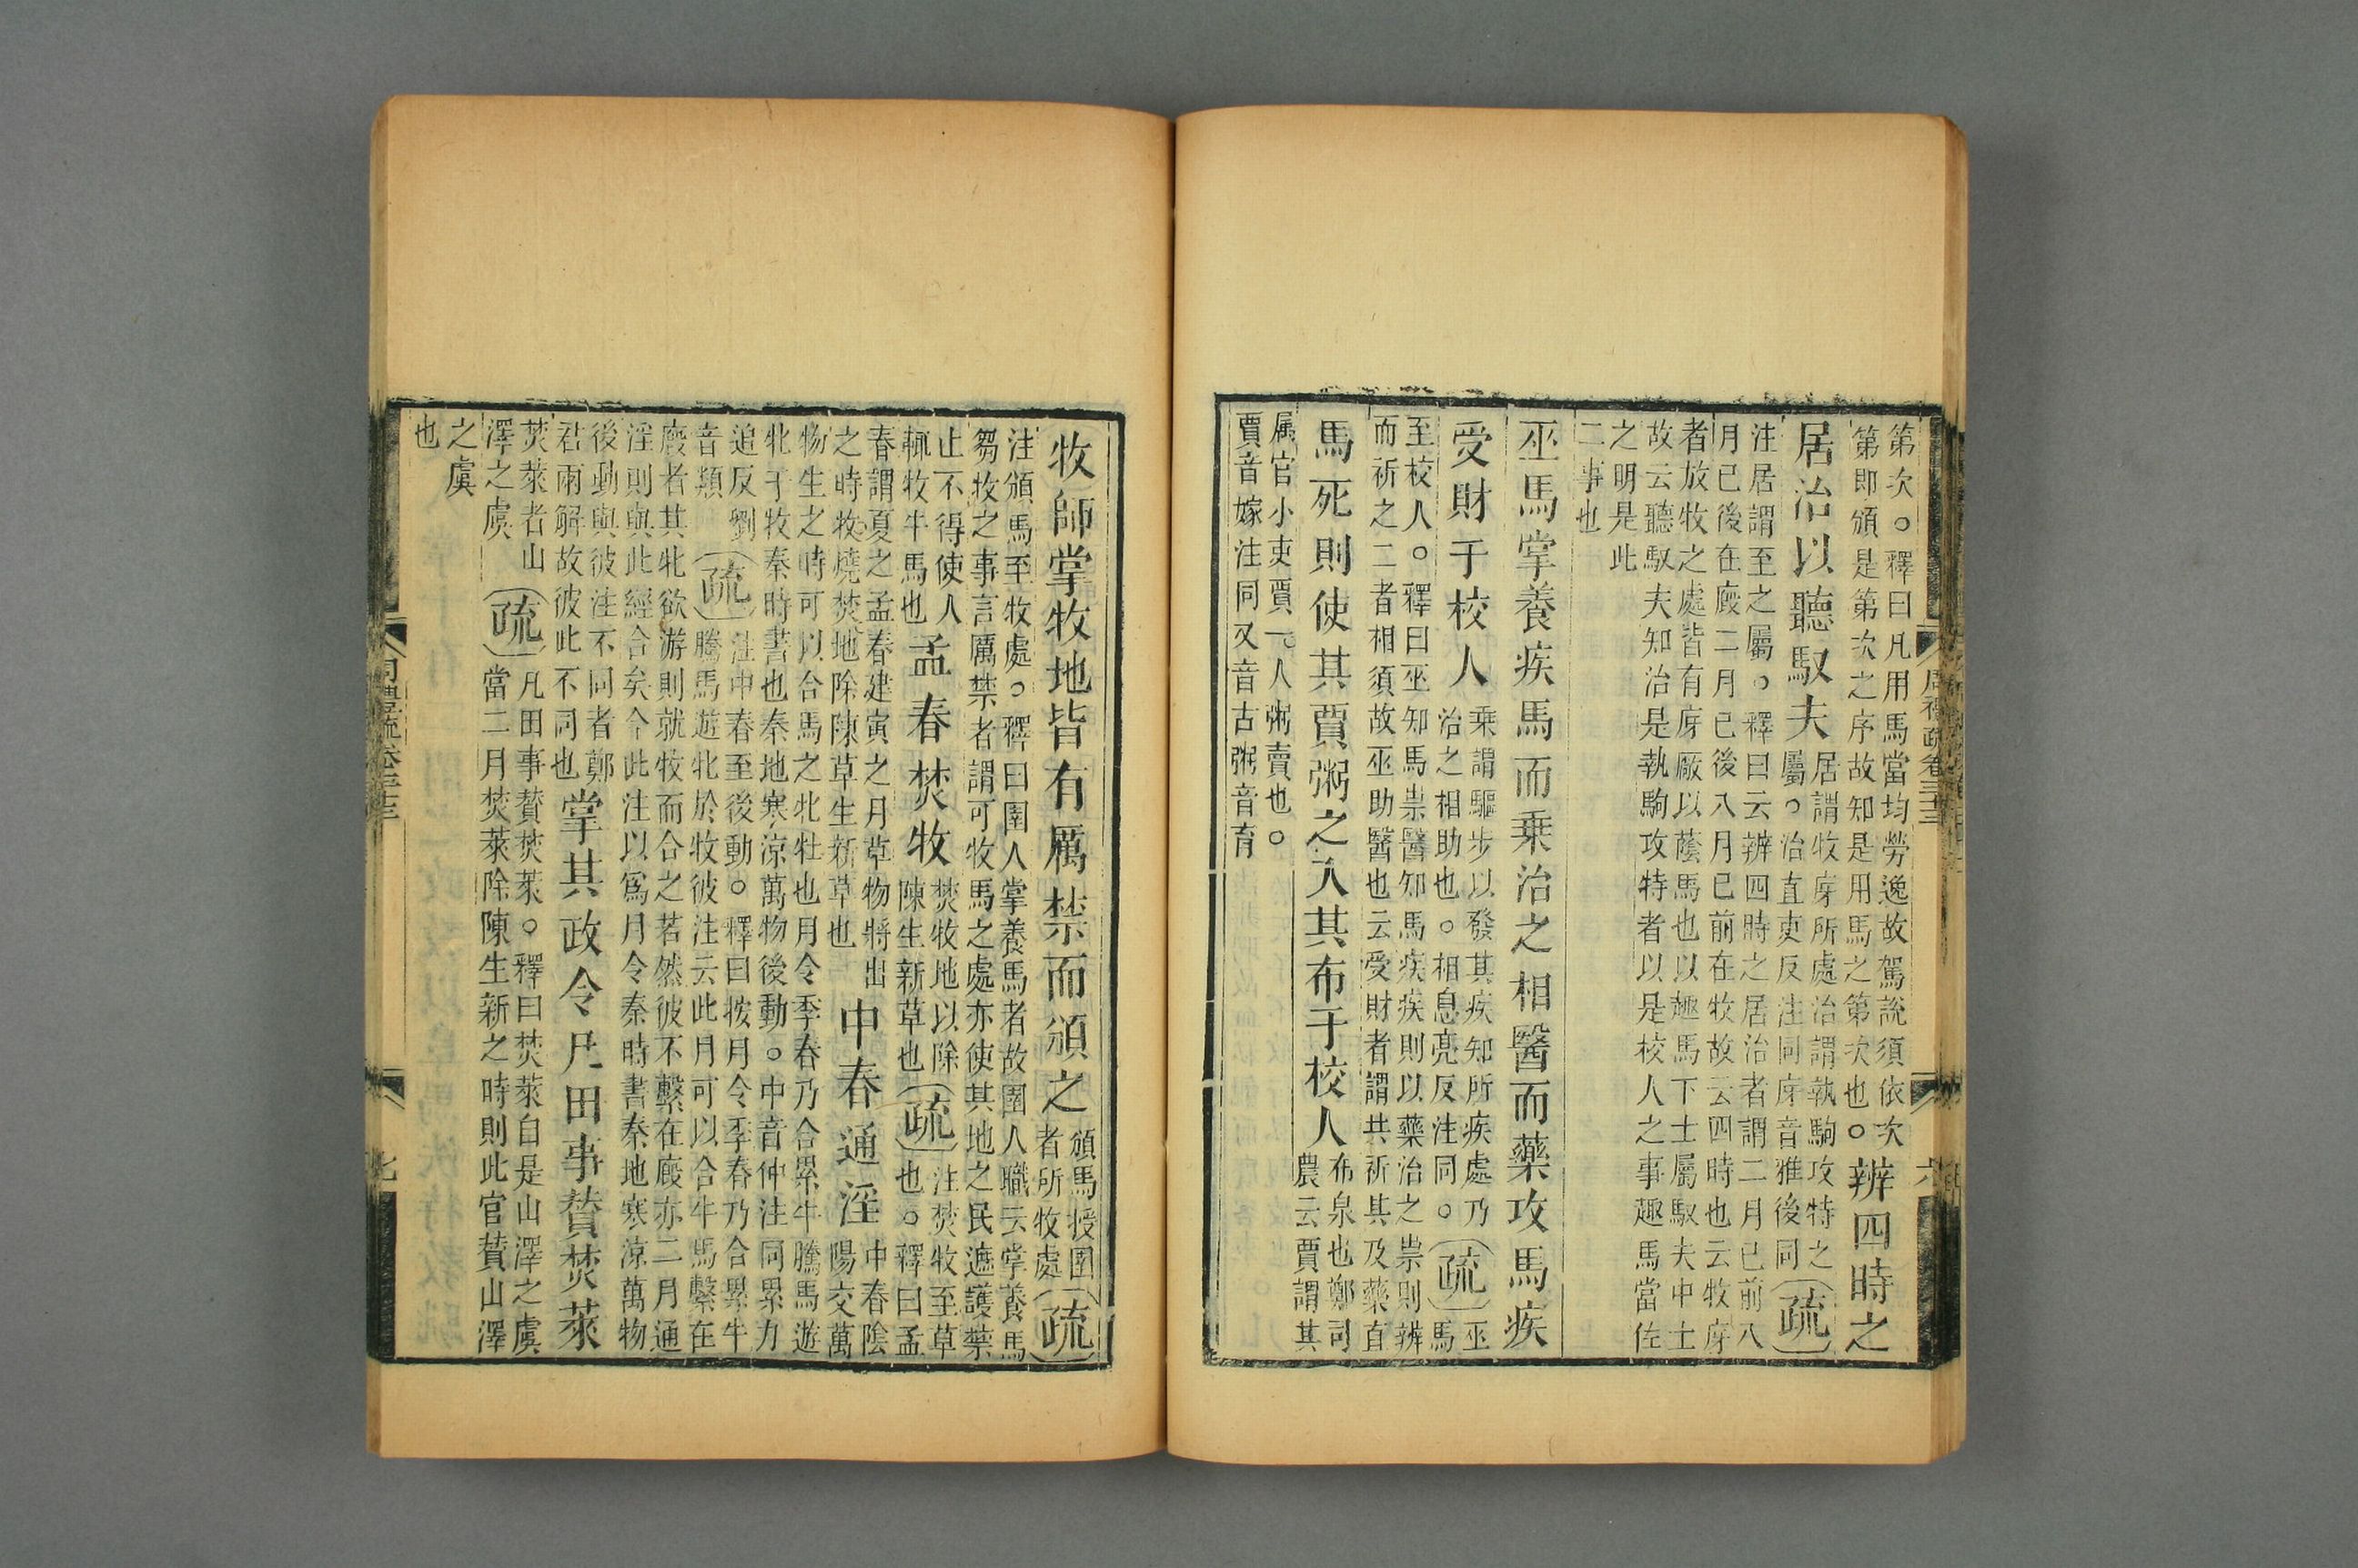 第次○釋曰凡用馬當均勞逸故駕說須依次
第即頒是第次之序故知是用馬之第次也○
辨四時之
居治以聽馭夫
居謂牧庌所處治謂執駒攻特之
屬○治直吏反注同庌音雅後同
疏
注居謂至之屬○釋曰云辨四時之居治者謂二月已前八
月已後在廄二月已後八月已前在牧故云四時也云牧庌
者放牧之處皆有庌廠以蔭馬也以趣馬下士屬馭夫中士
故云聽馭夫知治是執駒攻特者以是校人之事趣馬當佐
之明是此
二事也
巫馬掌養疾馬而乗治之相醫而藥攻馬疾
受財于校人
乗謂驅步以發其疾知所疾處乃
治之相助也○相息亮反注同○
疏
巫
馬
至校人○釋曰巫知馬祟醫知馬疾疾則以藥治之祟則辨
而祈之二者相須故巫助醫也云受財者謂共祈其及藥直
馬死則使其賈粥之入其布于校人
布泉也鄭司
農云賈謂其
属官小吏賈二人粥賣也○
賈音嫁注同又音古粥音育
周禮疏卷三十三
六
牧師掌牧地皆有厲禁而頒之
頒馬授圉
者所牧處
疏
注頒馬至牧處○釋曰圉人掌養馬者故圉人職云掌養馬
芻牧之事言厲禁者謂可牧馬之處亦使其地之民遮護禁
止不得使人
輒牧牛馬也
孟春焚牧
焚牧地以除
陳生新草也
疏
注焚牧至草
也○釋曰孟
春謂夏之孟春建寅之月草物將出
之時牧燒焚地除陳草生新草也
中春通淫
中春陰
陽交萬
物生之時可以合馬之牝牡也月令季春乃合累牛騰馬遊
牝于牧秦時書也秦地寒涼萬物後動○中音仲注同累力
追反劉
音類
疏
注中春至後動○釋曰按月令季春乃合累牛
騰馬遊牝於牧彼注云此月可以合牛馬繫在
廄者其牝欲游則就牧而合之若然彼不繫在廄亦二月通
淫則與此經合矣今此注以爲月令秦時書秦地寒涼萬物
後動與彼注不同者鄭
君兩解故彼此不同也
掌其政令凡田事贊焚萊
焚萊者山
澤之虞
疏
凡田事贊焚萊○釋曰焚萊自是山澤之虞
當二月焚萊除陳生新之時則此官贊山澤
之虞
也
周禮疏卷三十三
七